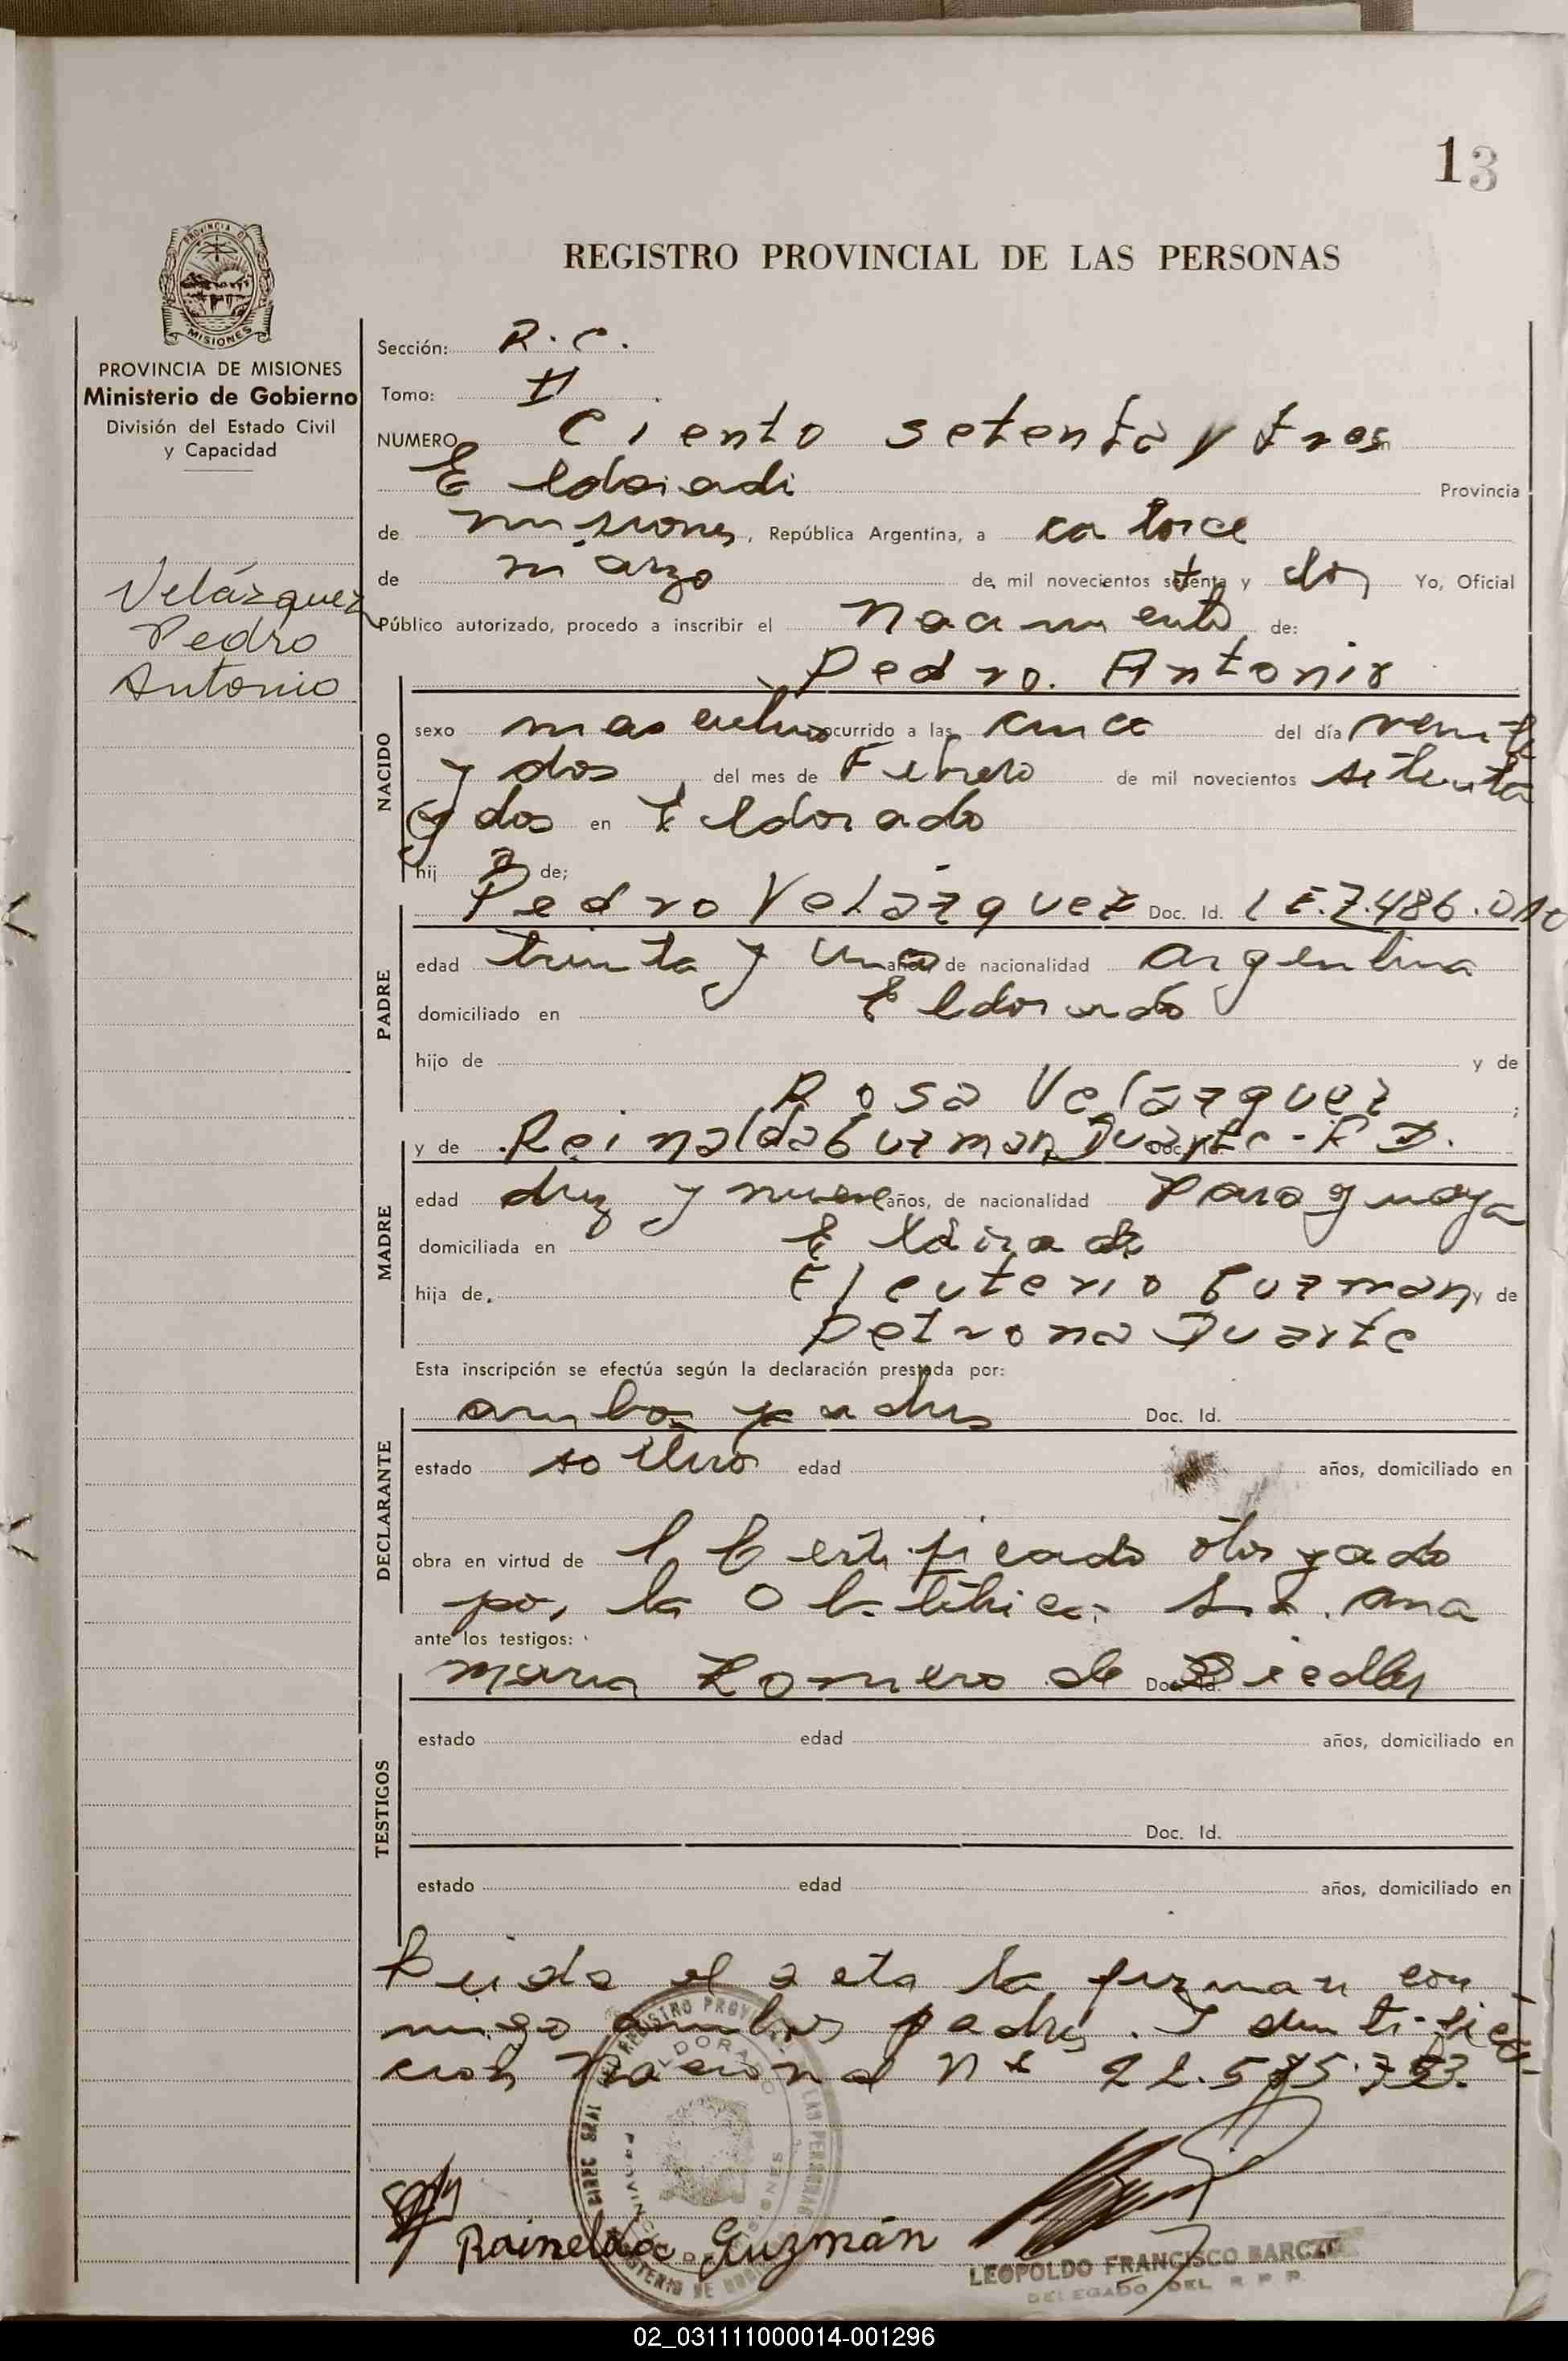 13
PROVINCIA DE MISIONES
REGISTRO PROVINCIAL DE LAS PERSONAS
PROVINCIA DE MISIONES
Ministerio de Gobierno
División del Estado Civil
y Capacidad
Velázquez
Pedro
Antonio
Sección: R. C.
Tomo: II
NUMERO Ciento setenta y tres
Eldorado Provincia
de misiones, República Argentina, a catorce
de marzo de mil novecientos setenta y dos Yo, Oficial
Público autorizado, procedo a inscribir el nacimiento de:
Pedro. Antonio
NACIDO
sexo masculino ocurrido a las cinco del día veinti
y dos del mes de Febrero de mil novecientos setenta
y dos en Eldorado
hij o de;
Pedro Velázquez Doc. Id. L E. 7.486.010
PADRE
edad treinta y uno años, de nacionalidad argentina
domiciliado en Eldorado
hijo de y de
Rosa Velázquez ;
MADRE
y de Reinalda Guzman Duarte - R D.
edad diez y nueve años, de nacionalidad Paraguaya
domiciliada en Eldorado
hija de, Eleuterio Guzman y de
Petrona Duarte
Esta inscripción se efectúa según la declaración prestada por:
DECLARANTE
ambos padres Doc. Id.
estado soltero edad años, domiciliado en
obra en virtud de Certificado otorgado
por la Obstétrica Sra. Ana
ante los testigos:
Maria Romero de Doc. Id.
TESTIGOS
estado edad años, domiciliado en
Doc. Id.
estado edad años, domiciliado en
Leida el acta la firman con
migo ambos padres. Identifica
cion Nacional Nº 22.575.753.
Rainelda Guzmán
LEOPOLDO FRANCISCO
DELEGADO DEL R P P
02_031111000014-001296